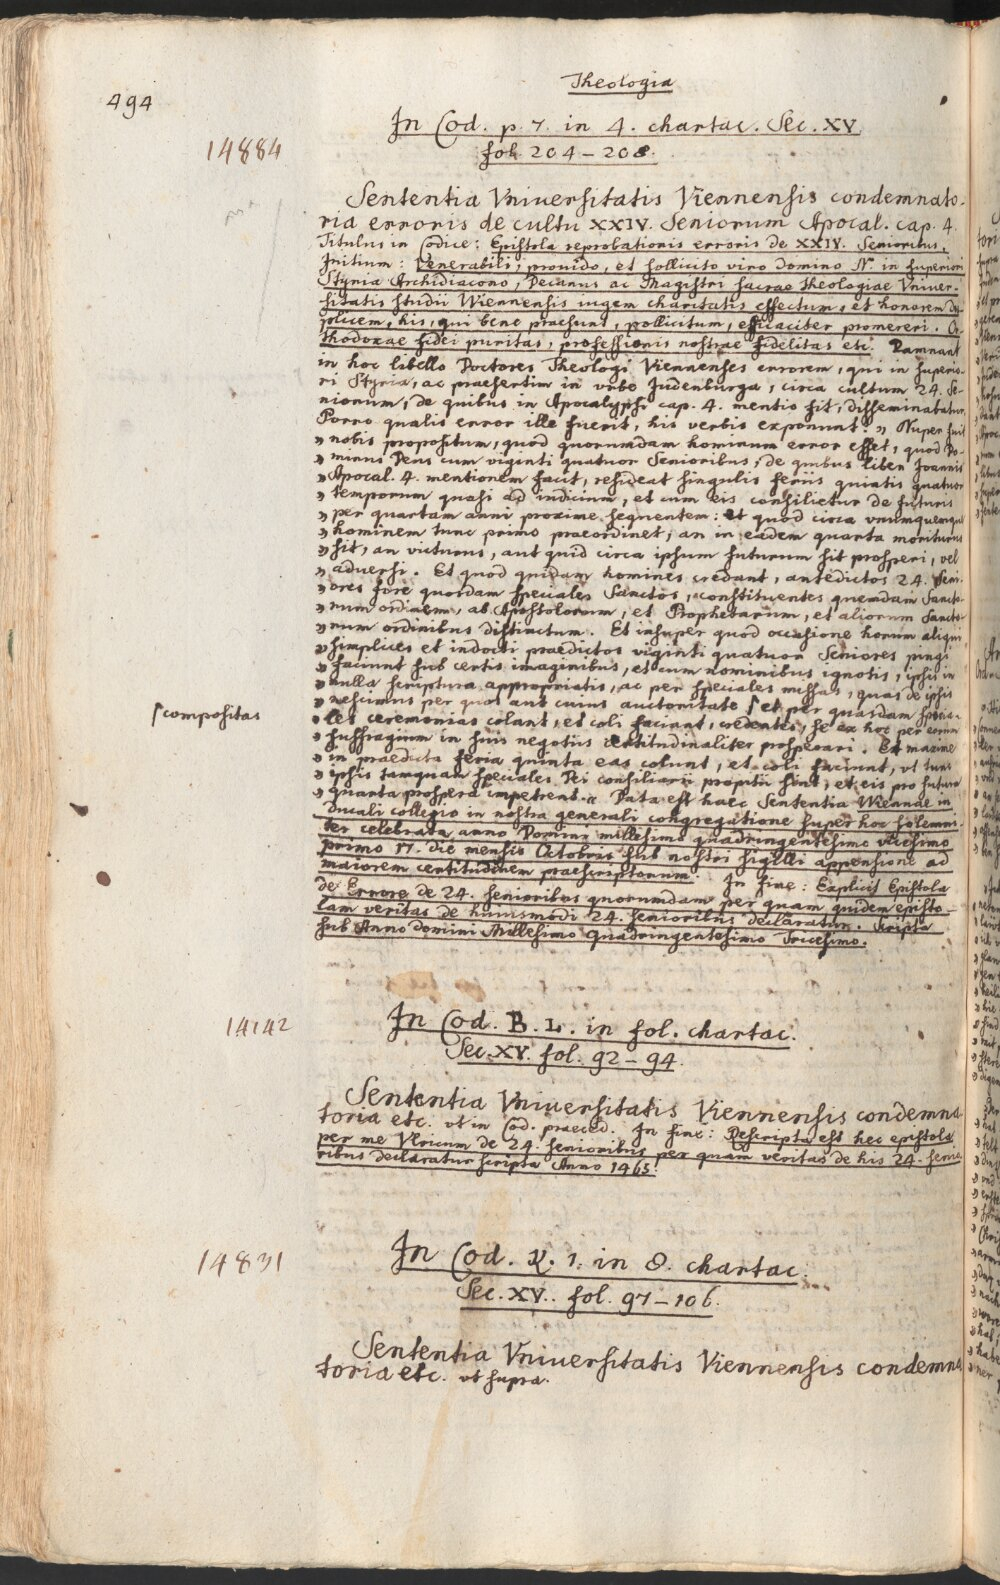 Theologia
494
In Cod. p. 7. in 4. chartac. Sec. XV.
14884
fol. 204 – 208.
Sententia Vniuersitatis Viennensis condemnato-
ria erroris de cultu XXIV. Seniorum Apocal. cap. 4.
Titulus in Codice: Epistola reprobationis erroris de XXIV. Senioribus.
Initium: Venerabili, prouido, et sollicito viro Domino N. in superiori
Styria Archidiacono, Decanus ac Magistri sacrae Theologiae Vniuer-
sitatis studii Wiennensis iugem charitatis effectum, et honorem du-
plicem, his, qui bene praesunt, pollicitum, efficaciter promereri. Or-
thodoxae fidei puritas, professionis nostrae fidelitas etc. Damnant
in hoc libello Doctores Theologi Viennenses errorem, qui in superio-
ri Styria, ac praesertim in vrbe Judenburga, circa cultum 24. Se-
niorum, de quibus in Apocalypsi cap. 4. mentio fit, disseminabatur.
Porro qualis error ille fuerit, his verbis exponunt: „ Nuper fuit
„ nobis propositum, quod quorumdam hominum error esset, quod Do-
„ minus Deus cum viginti quatuor Senioribus, de quibus liber Joannis
„ Apocal. 4. mentionem facit, resideat singulis feriis quintis quatuor
„ temporum quasi ad iudicium, et cum eis consilietur de futuris
„ per quartam anni proxime sequentem: et quod circa vnumquemque
„ hominem tunc primo praeordinet, an in eadem quarta moriturus
„ sit, an victurus, aut quid circa ipsum futurum sit prosperi, vel
„ aduersi. Et quod quidam homines credant, antedictos 24. Seni-
„ ores fore quosdam speciales Sanctos, constituentes quemdam Sancto-
„ rum ordinem, ab Apostolorum, et Prophetarum, et aliorum Sancto-
„ rum ordinibus distinctum. Et insuper quod occasione horum aliqui
„ simplices et indocti praedictos viginti quatuor Seniores pingi
„ faciunt sub certis imaginibus, et cum nominibus ignotis, ipsis in
„ nulla scriptura appropriatis, ac per speciales missas, quas de ipsis
„ nescimus per quos aut cuius auctoritate ſ et per quasdam specia-
ſ compositas
„ les ceremonias colant, et coli faciant, credentes, se ex hoc per eorum
„ suffragium in suis negotiis certitudinaliter prosperari. Et maxime
„ in praedicta feria quinta eas colunt, et coli faciunt, vt tunc
„ ipsis tamquam speciales Dei consiliarii propitii sint, et eis pro futura
„ quarta prospera impetrent.“ Data est haec Sententia Wiennae in
Ducali collegio in nostra generali congregatione super hoc solemni-
ter celebrata anno Domini millesimo quadringentesimo vicesimo
primo 17. die mensis Octobris sub nostri sigilli appensione ad
maiorem certitudinem praescriptorum. In fine: Explicit Epistola
de Errore de 24. senioribus quorumdam per quam quidem episto-
lam veritas de huiusmodi 24. senioribus declaratur. Scripta
sub Anno domini Millesimo quadringentesimo Tricesimo.
In Cod. B. L. in fol. chartac.
14142
Sec. XV. fol. 92 – 94.
Sententia Vniuersitatis Viennensis condemna-
toria etc. vt in Cod. praeced. In fine: Descripta est hec epistola
per me Vlricum de 24. senioribus per quam veritas de his 24. senio-
ribus declaratur scripta Anno 1465.
In Cod. K. 1. in 8. chartac.
14831
Sec. XV. fol. 97 – 106.
Sententia Vniuersitatis Viennensis condemna-
toria etc. vt supra.